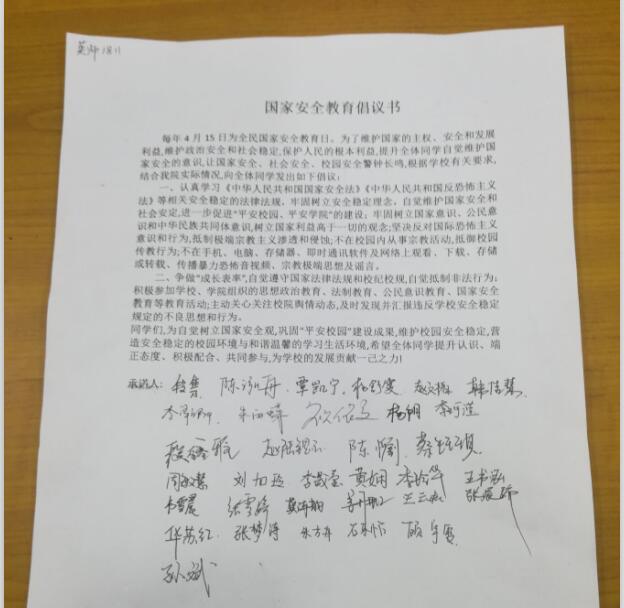 英师1811
国家安全教育倡议书
每年4月15日为全民国家安全教育日。为了维护国家的主权、安全和发展
利益,维护政治安全和社会稳定,保护人民的根本利益,提升全体同学自觉维护国
家安全的意识,让国家安全、社会安全、校园安全警钟长鸣,根据学校有关要求,
结合我院实际情况,向全体同学发出如下倡议:
一、认真学习《中华人民共和国国家安全法》《中华人民共和国反恐怖主义
法》等相关安全稳定的法律法规。牢固树立安全稳定理念。自觉维护国家安全和
社会安定,进一步促进“平安校园、平安学院”的建设;牢固树立国家意识、公民意
识和中华民族共同体意识,树立国家利益高于一切的观念;坚决反对国际恐怖主义
意识和行为,抵制极端宗教主义渗透和侵蚀;不在校园内从事宗教活动,抵御校园
传教行为;不在手机、电脑、存储器、即时通讯软件及网络上观看、下载、存储
或转载、传播暴力恐怖音视频、宗教极端思想及谣言。
二、争做“成长表率”,自觉遵守国家法律法规和校纪校规,自觉抵制非法行为;
积极参加学校、学院组织的思想政治教育、法制教育、公民意识教育、国家安全
教育等教育活动;主动关心关注校院舆情动态,及时发现并汇报违反学校安全稳定
规定的不良思想和行为。
同学们,为自觉树立国家安全观,巩固“平安校园”建设成果,维护校园安全稳定,营
造安全稳定的校园环境与和谐温馨的学习生活环境,希望全体同学提升认识、端
正态度、积极配合、共同参与,为学校的发展贡献一己之力!
承诺人: 覃凯宁
杨钥
陈
刘 黄娴
王云
华苏红 张梦涛 朱方舟
孙斌